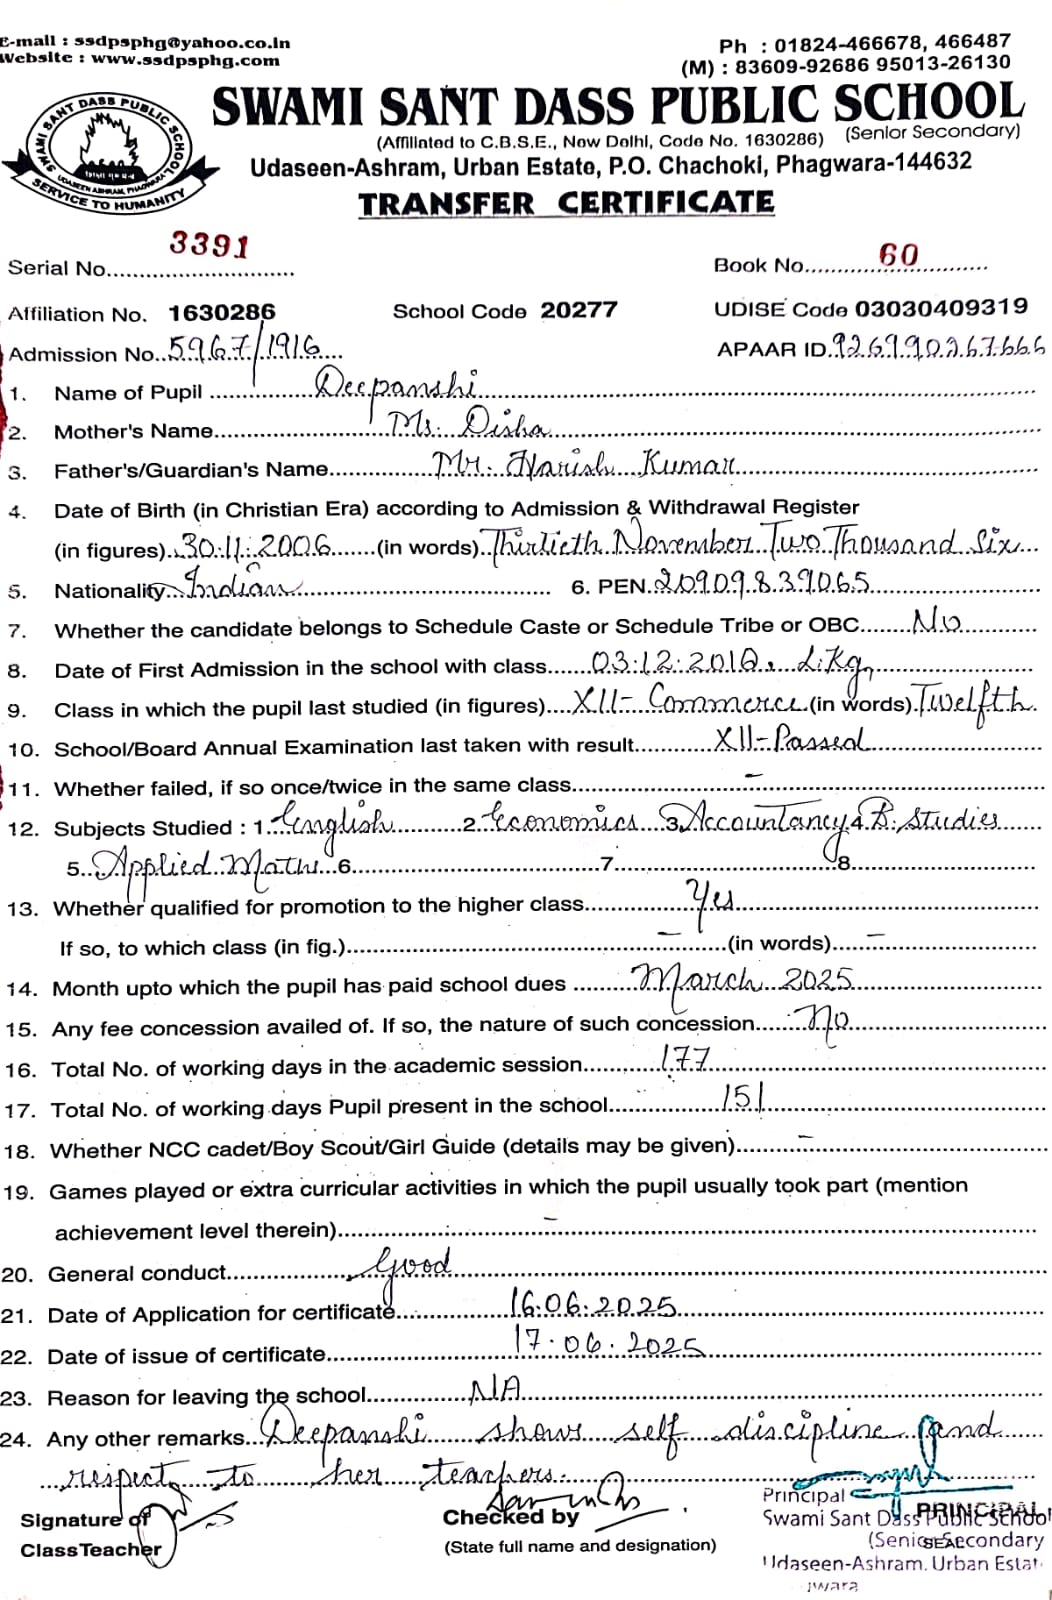 E-mail : ssdpsphg@yahoo.co.in
Website : www.ssdpsphg.com
Ph : 01824-466678, 466487
(M) : 83609-92686 95013-26130
SWAMI SANT DASS PUBLIC SCHOOL
UDASEEN ASHRAM, PHAGWARA
SERVICE TO HUMANITY
SWAMI SANT DASS PUBLIC SCHOOL
(Affiliated to C.B.S.E., New Delhi, Code No. 1630286) (Senior Secondary)
Udaseen-Ashram, Urban Estate, P.O. Chachoki, Phagwara-144632
TRANSFER CERTIFICATE
Serial No. 3391 Book No. 60
Affiliation No. 1630286 School Code 20277 UDISE Code 03030409319
Admission No. 5967/1916 APAAR ID. 926990267666
1. Name of Pupil Deepanshi
2. Mother's Name Ms. Disha
3. Father's/Guardian's Name Mr. Harish Kumar
4. Date of Birth (in Christian Era) according to Admission & Withdrawal Register
(in figures) 30.11.2006 (in words) Thirtieth November Two Thousand Six
5. Nationality Indian 6. PEN. 20909839065
7. Whether the candidate belongs to Schedule Caste or Schedule Tribe or OBC No
8. Date of First Admission in the school with class 03.12.2010, L.Kg,
9. Class in which the pupil last studied (in figures) XII- Commerce (in words) Twelfth
10. School/Board Annual Examination last taken with result XII-Passed
11. Whether failed, if so once/twice in the same class -
12. Subjects Studied : 1. English 2. Economics 3. Accountancy 4. B. Studies
5. Applied Maths 6. 7. 8.
13. Whether qualified for promotion to the higher class Yes
If so, to which class (in fig.) - (in words) -
14. Month upto which the pupil has paid school dues March 2025
15. Any fee concession availed of. If so, the nature of such concession No
16. Total No. of working days in the academic session 177
17. Total No. of working days Pupil present in the school 151
18. Whether NCC cadet/Boy Scout/Girl Guide (details may be given) -
19. Games played or extra curricular activities in which the pupil usually took part (mention
achievement level therein) -
20. General conduct Good
21. Date of Application for certificate 16.06.2025
22. Date of issue of certificate 17.06.2025
23. Reason for leaving the school NA
24. Any other remarks Deepanshi shows self discipline and
respect to her teachers.
Signature of
Class Teacher
Checked by
(State full name and designation)
Principal
PRINCIPAL
Swami Sant Dass Public School
(Senior Secondary
SEAL
Udaseen-Ashram, Urban Estat